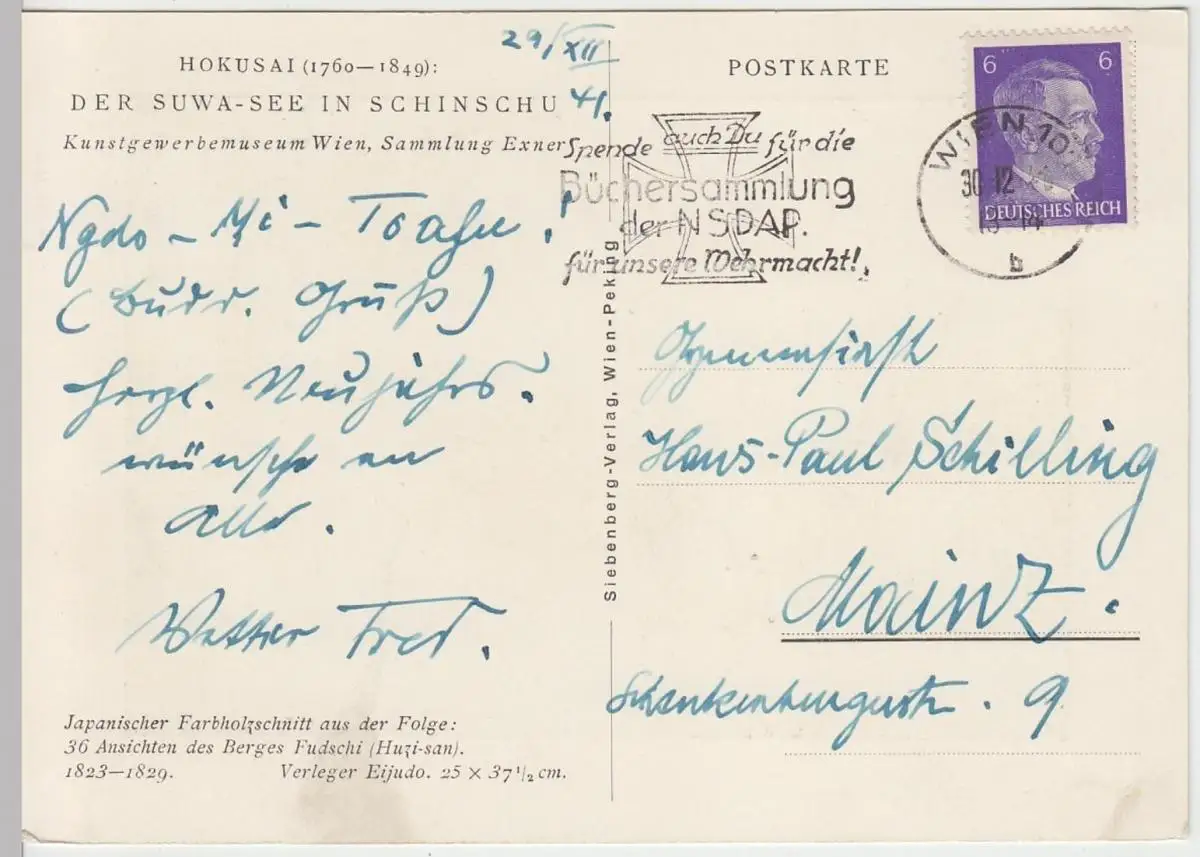 29/XII
41.
HOKUSAI (1760—1849):
DER SUWA-SEE IN SCHINSCHU
Kunstgewerbemuseum Wien, Sammlung Exner
Ngdo - Mi - Toafu!
(Budd. Gruß)
Herzl. Neujahrs-
wünsche an
Alle.
Vetter Fred.
Japanischer Farbholzschnitt aus der Folge:
36 Ansichten des Berges Fudschi (Huzi-san).
1823—1829. Verleger Eijudo. 25 × 37 1/2 cm.
Siebenberg-Verlag, Wien-Peking
POSTKARTE
Spende auch Du für die
Büchersammlung
der NSDAP.
für unsere Wehrmacht!
6 6
DEUTSCHES REICH
WIEN 10
30 12
b
Hans-Paul Schilling
Mainz.
9